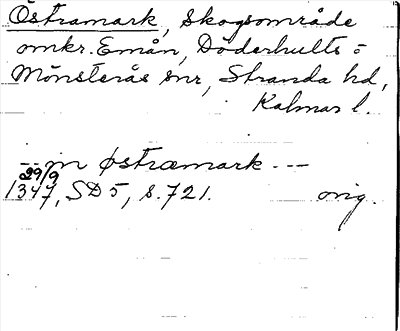 Östramark, Skogsområde
omkr. Emån, Döderhults =
Mönsterås snr, Stranda hd,
Kalmar l.
-- jn østræmark ---
29/9
1347, SD 5, s. 721. orig.